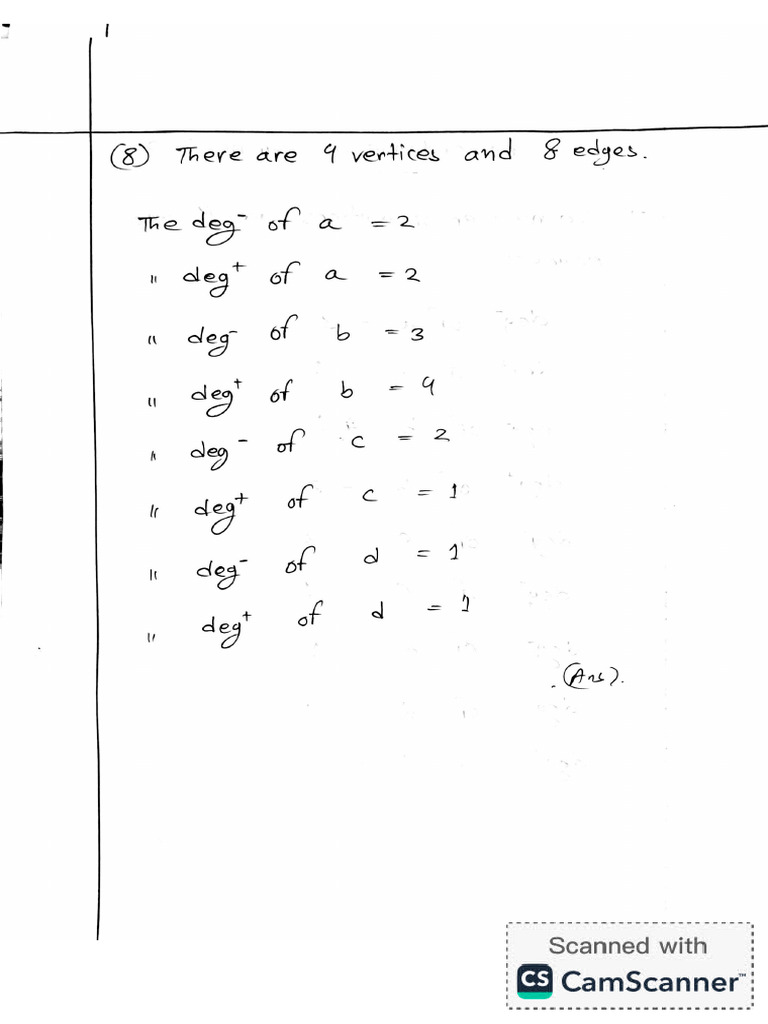 (8) There are 4 vertices and 8 edges.
The deg⁻ of a = 2
" deg⁺ of a = 2
" deg⁻ of b = 3
" deg⁺ of b = 4
" deg⁻ of c = 2
" deg⁺ of c = 1
" deg⁻ of d = 1
" deg⁺ of d = 1
(Ans).
Scanned with
CS CamScanner™